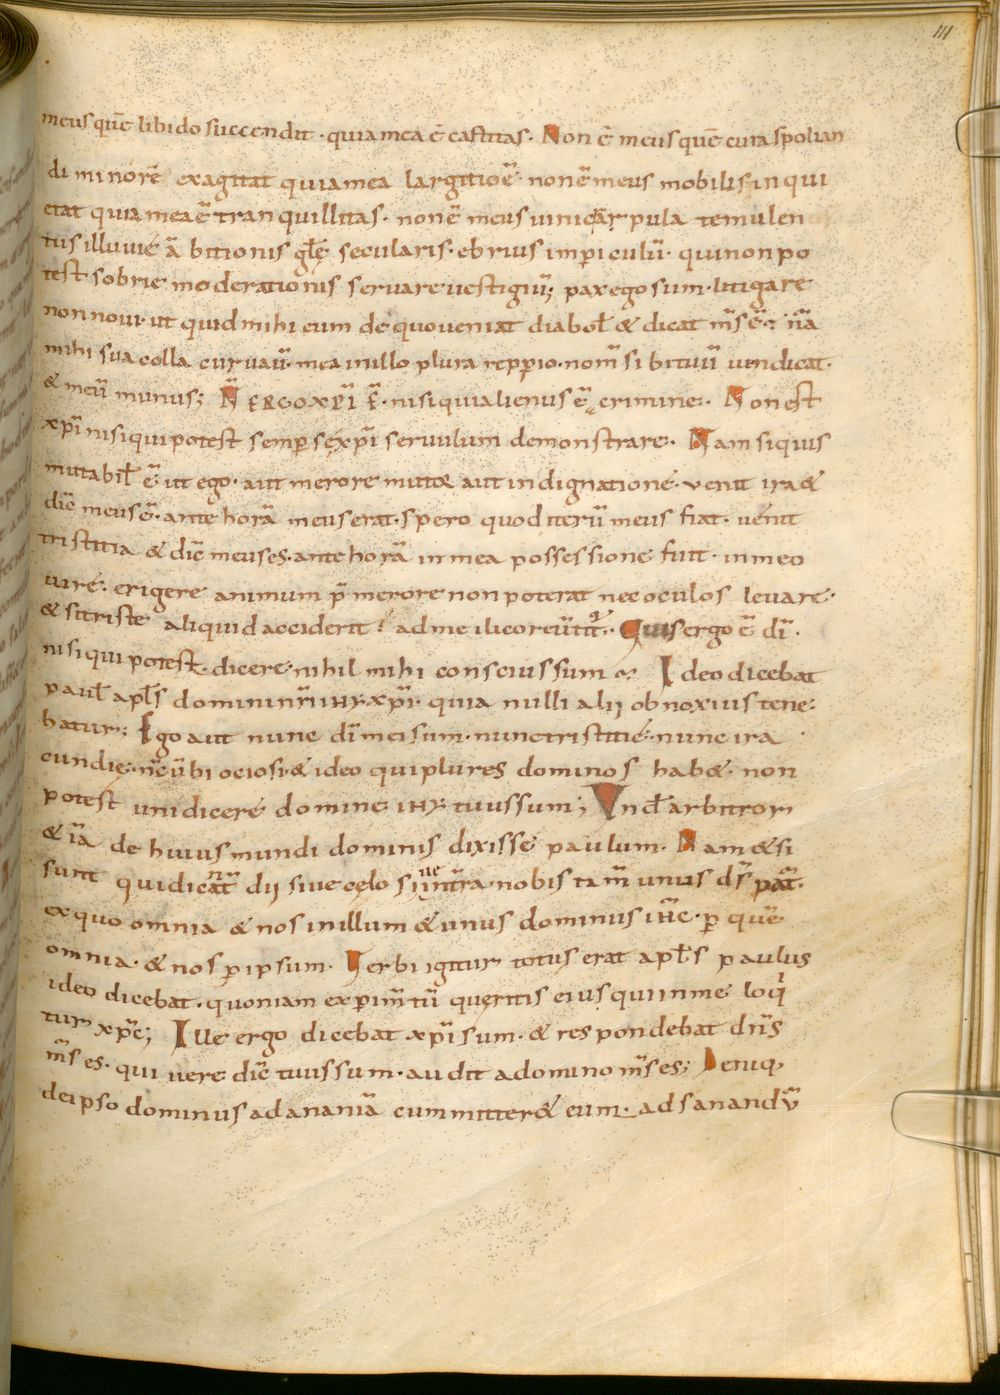 111
meus quē libido succendit · quia mea ē castitas · Non ē meus quē cura spolian
di minorē exagitat quia mea largitio ē · non ē meus mobilis inqui
etat quia mea ē tranquillitas · non ē meus uini crapula temulen
tus illuuie ābitionis glę secularis · ebrius in piculū · qui non po
test sobrie moderationis seruare uestigiū; pax ego sum · litigare
non noui · ut quid mihi cum de quo ueniat diabol & dicat ms ē · nā
mihi sua colla curuauit · mea in illo plura repperio · nom sibi tuū uendicat ·
& meū munus; N ERGO XPI Ē · nisi qui alienus ē crimine · Non est
xpi nisi qui potest semp se xpi seruulum demonstrare · Nam siquis
mutabil ē ut ego · aut merore mutor aut indignatione · uenit ira &
dic meus ē · ante horā meus erat · spero quod iterū meus fiat · uenit
tristitia & dic meus es · ante horā in mea possessione fuit · in meo
iure · erigere animum p merore non poterat nec oculos leuare ·
& si triste aliquid acciderit ad me ilico reūtit · Quis ergo ē di ·
nisi qui potest · dicere · nihil mihi conscius sum · Ideo dicebat
paul apls domini nri ihu xpi · quia nulli alii obnoxius tene
batur; Ego aut nunc di mei sum · nunc tristitie · nunc ira
cundie · nc ubi ociosi · & ideo qui plures dominos hab& · non
potest uni dicere domine ihu tuus sum; Und arbitror
& iā de huius mundi dominis dixisse paulum · Nam & si
sunt qui dicant dii siue celo siue in tra · nobis tam unus ds pat ·
ex quo omnia & nos in illum & unus dominus ihc · p quē
omnia · & nos p ipsum · Verbi igitur totus erat apls paulus
ideo dicebat · quoniam experimtū queritis eius qui in me loq
tur xpc; Ille ergo dicebat xpi sum · & respondebat dns
ms es · qui uere dic tuus sum · audit a domino ms es; Deniq
de ipso dominus ad ananiā cum mitter& eum · ad sanandū